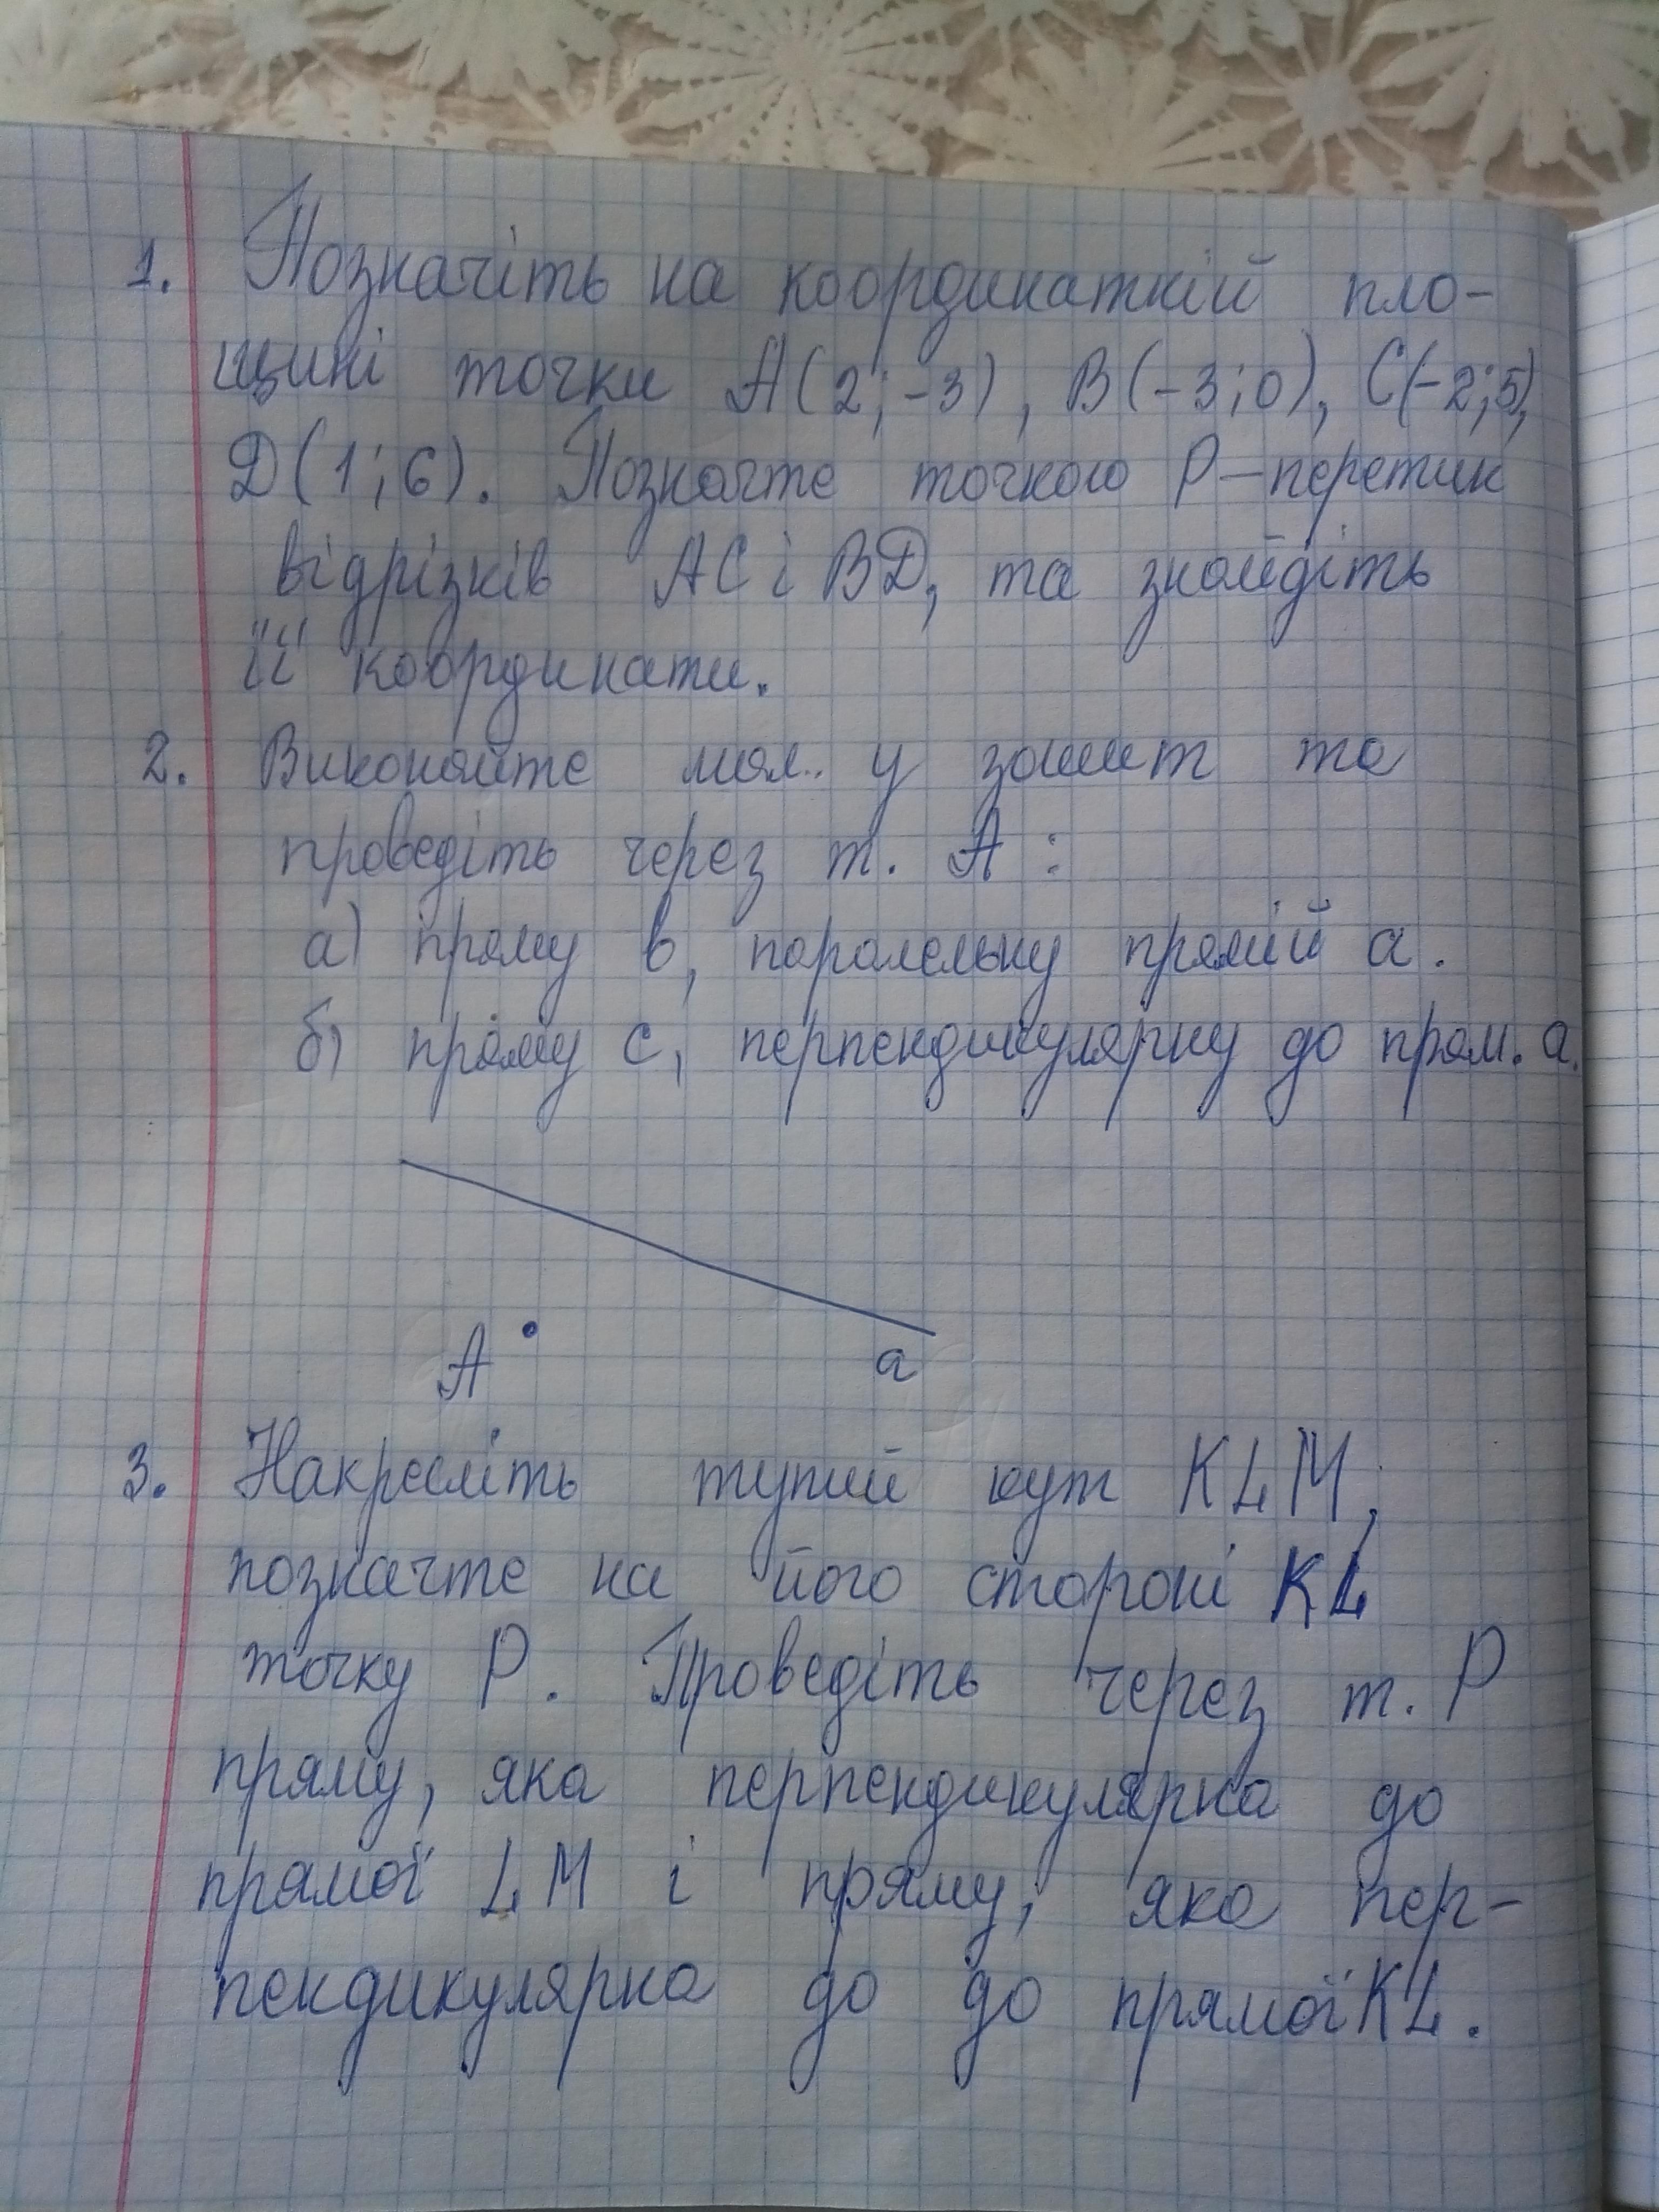 1. Позначіть на координатній пло-
щині точки А(2;-3), В(-3;0), С(-2;5),
D(1;6). Позначте точкою Р-перетин
відрізків АС і ВD, та знайдіть
її координати.
2. Виконайте мал. у зошит та
проведіть через т. А:
а) пряму в, паралельну прямій а.
б) пряму с, перпендикулярну до прям. а.
А
а
3. Накресліть тупий кут KLM,
позначте на його стороні KL
точку Р. Проведіть через т. Р
пряму, яка перпендикулярна до
прямої LM і пряму, яка пер-
пендикулярна до до прямої KL.